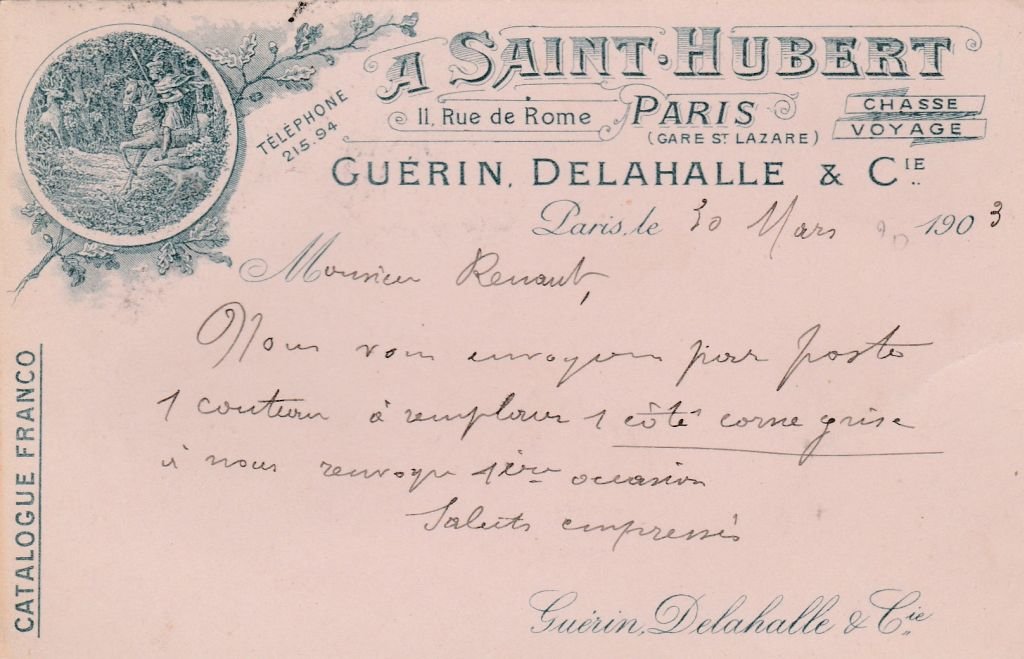 A SAINT-HUBERT
TÉLÉPHONE
215.94
11, Rue de Rome
PARIS
(GARE ST LAZARE)
CHASSE
VOYAGE
GUÉRIN, DELAHALLE & CIE
Paris, le 30 Mars 1903
Monsieur Renault,
Nous vous envoyons par poste
1 couteau à remplacer 1 côté corne grise
à nous renvoyer 1ère occasion
Saluts empressés
Guérin, Delahalle & Cie
CATALOGUE FRANCO